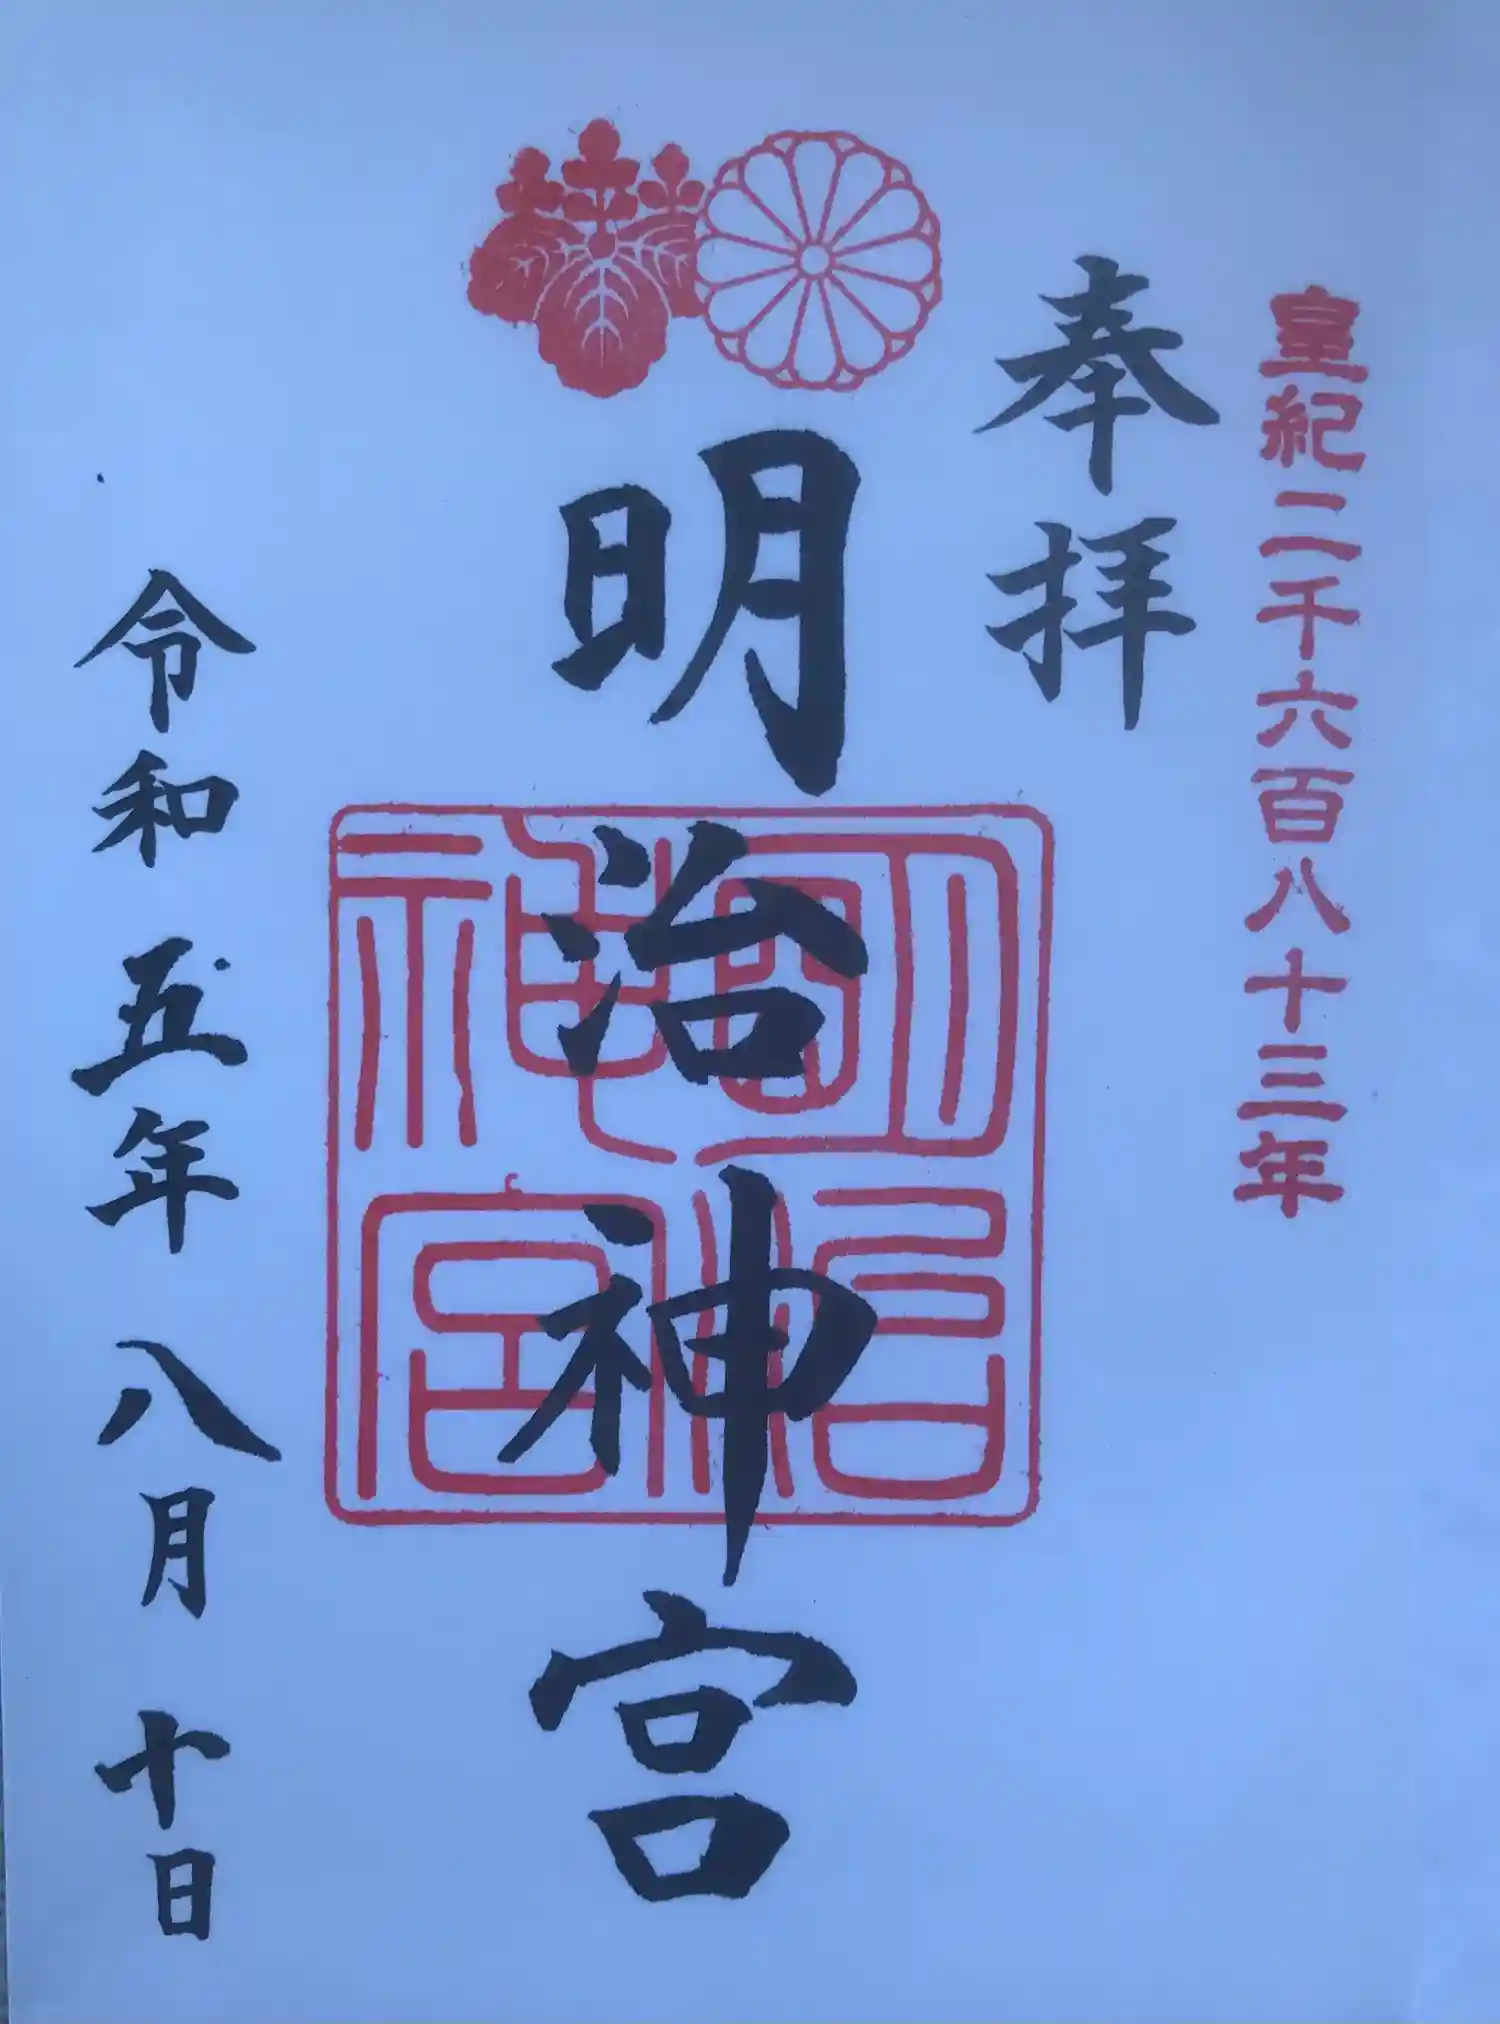 皇紀二千六百八十三年
奉拝
明治神宮
明治
神宮
令和五年八月十日